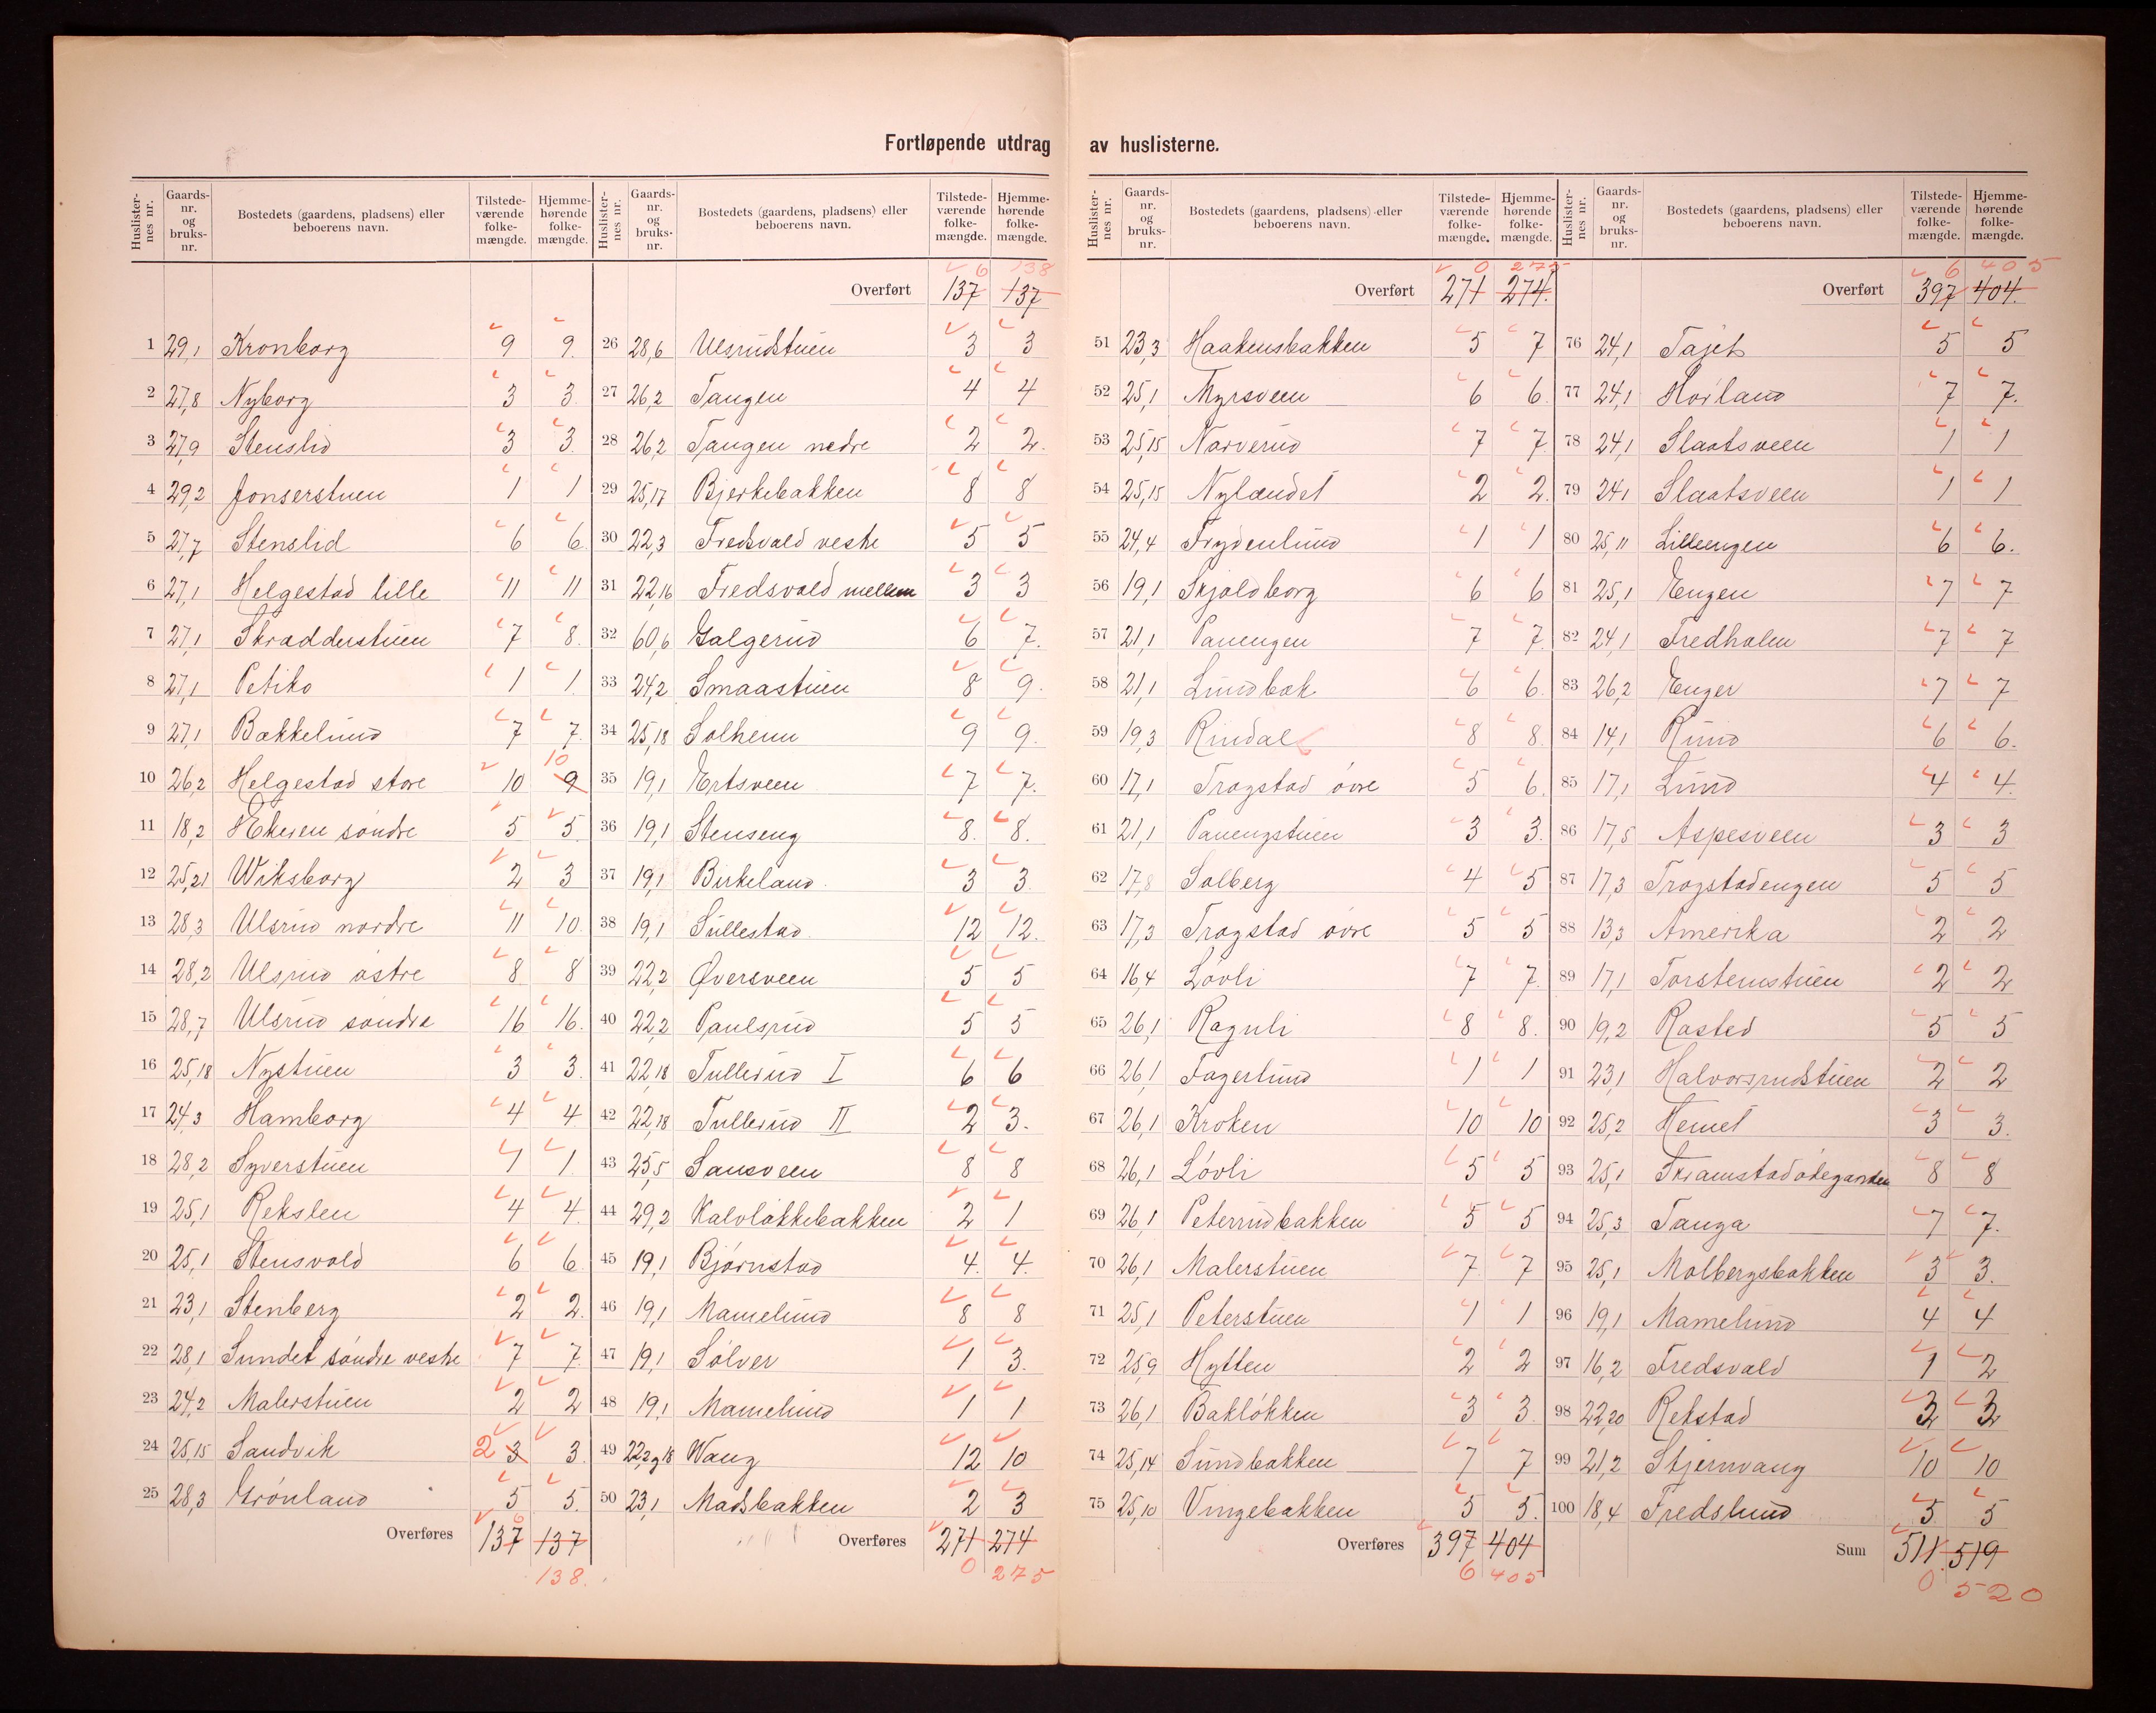 Fortløpende utdrag av huslisterne.
Huslister-nes nr. Gaards-nr. og bruks-nr. Bostedets (gaardens, pladsens) eller beboerens navn. Tilstede-værende folke-mængde. Hjemme-hørende folke-mængde.
1 29,1 Kronborg 9 9.
2 27,8 Nyborg 3 3.
3 27,9 Stenslid 3 3.
4 29,2 Jonserstuen 1 1
5 27,7 Stenslid 6 6.
6 27,1 Helgestad lille 11 11
7 27,1 Skradderstuen 7 8.
8 27,1 Petiko 1 1.
9 27,1 Bakkelund 7 7.
10 26,2 Helgestad store 10 9 10
11 18,2 Ekeren søndre 5 5.
12 25,21 Wiksborg 2 3
13 28,3 Ulsrud nordre 11 10.
14 28,2 Ulsrud østre 8 8
15 28,7 Ulsrud søndre 16 16.
16 25,18 Nystuen 3 3.
17 24,3 Hamborg 4 4.
18 28,2 Syverstuen 1 1.
19 25,1 Rekslen 4 4.
20 25,1 Stensvold 6 6.
21 23,1 Stenberg 2 2.
22 28,1 Sundet søndre vestre 7 7.
23 24,2 Malerstuen 2 2
24 25,15 Sandvik 2 3 3.
25 28,3 Grønland 5 5.
Overføres 137 137
6 138.
Huslister-nes nr. Gaards-nr. og bruks-nr. Bostedets (gaardens, pladsens) eller beboerens navn. Tilstede-værende folke-mængde. Hjemme-hørende folke-mængde.
6 138
Overført 137 137
26 28,6 Ulsrudstuen 3 3
27 26,2 Tangen 4 4
28 26,2 Tangen nedre 2 2.
29 25,17 Bjerkebakken 8 8
30 22,3 Fredsvold vestre 5 5
31 22,16 Fredsvold mellem 3 3
32 60,6 Galgerud 6 7.
33 24,2 Smaastuen 8 9.
34 25,18 Solheim 9 9.
35 19,1 Ertsveen 7 7.
36 19,1 Stenseng 8. 8.
37 19,1 Birkeland 3 3.
38 19,1 Sullestad 12 12.
39 22,2 Øversveen 5 5
40 22,2 Paulsrud 5 5
41 22,18 Tullerud I 6 6
42 22,18 Tullerud II 2 3.
43 25,5 Sansveen 8 8
44 29,2 Kalvløkkebakken 2 1
45 19,1 Bjørnstad 4. 4.
46 19,1 Mamelund 8 8
47 19,1 Sølver 1 3.
48 19,1 Mamelund 1 1
49 22,2 og 18 Wang 12 10
50 23,1 Madsbakken 2 3
Overføres 271 274
0 275
Huslister-nes nr. Gaards-nr. og bruks-nr. Bostedets (gaardens, pladsens) eller beboerens navn. Tilstede-værende folke-mængde. Hjemme-hørende folke-mængde.
0 275
Overført 271 274.
51 23,3 Haakensbakken 5 7
52 25,1 Myrsveen 6 6.
53 25,15 Narverud 7 7.
54 25,15 Nylandet 2 2.
55 24,4 Frydenlund 1 1
56 19,1 Skjoldborg 6 6
57 21,1 Panengen 7 7.
58 21,1 Lundbæk 6 6.
59 19,3 Rindal 8 8.
60 17,1 Trogstad øvre 5 6.
61 21,1 Panengstuen 3 3.
62 17,8 Solberg 4 5
63 17,3 Trogstad øvre 5 5
64 16,4 Løvli 7 7.
65 26,1 Raguli 8 8.
66 26,1 Fagerlund 1 1
67 26,1 Kroken 10 10
68 26,1 Løvli 5 5
69 26,1 Peterrudbakken 5 5
70 26,1 Malerstuen 7. 7
71 25,1 Peterstuen 1 1
72 25,9 Hytten 2 2
73 26,1 Bakløkken 3 3.
74 25,14 Sundbakken 7 7
75 25,10 Vingebakken 5 5.
Overføres 397 404
6 405
Huslister-nes nr. Gaards-nr. og bruks-nr. Bostedets (gaardens, pladsens) eller beboerens navn. Tilstede-værende folke-mængde. Hjemme-hørende folke-mængde.
6 405
Overført 397 404.
76 24,1 Tajet 5 5
77 24,1 Horland 7 7.
78 24,1 Slaatsveen 1 1
79 24,1 Slaatsveen 1 1
80 25,11 Lilleengen 6 6.
81 25,1 Engen 7 7
82 24,1 Fredholen 7 7
83 26,2 Enger 7 7
84 14,1 Rund 6 6.
85 17,1 Lund 4 4.
86 17,5 Aspesveen 3 3
87 17,3 Trogstadengen 5 5
88 13,3 Amerika 2 2
89 17,1 Torstenstuen 2 2
90 19,2 Rasted 5 5
91 23,1 Halvorsrudstuen 2 2
92 25,2 Hemet 3 3.
93 25,1 Skramstadødegaarden 8 8
94 25,3 Tanga 7 7.
95 25,1 Molbergsbakken 3 3.
96 19,1 Mamelund 4 4
97 16,2 Fredsvald 1 2
98 22,20 Rekstad 3 3
99 21,2 Stjernvang 10 10
100 18,4 Fredslund 5. 5
Sum 511. 519
0 520